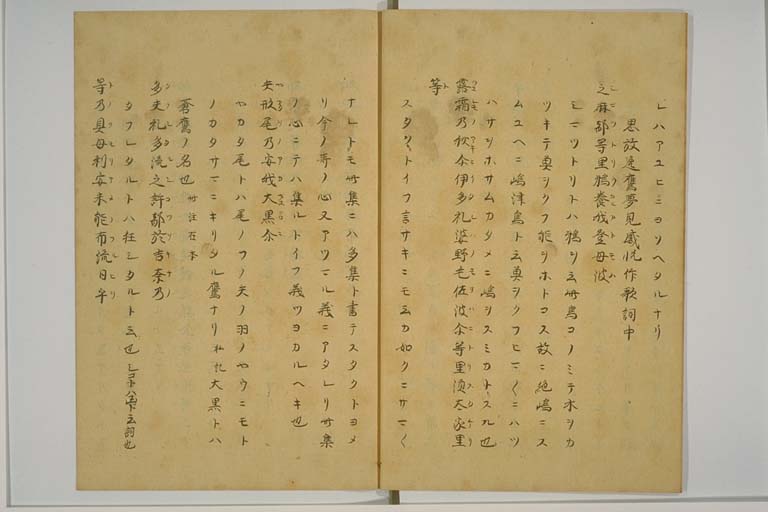 レハアユヒミヨソヘタルナリ
思放逸鷹夢見感悦作歌詞中
之麻都等里鵜養我登母波
シマツトリトハ鵜ヲ云此鳥コノミテ水ヲカ
ツキテ魚ヲクフ能ヲホトコス故ニ絶嶋ニス
ムユヘニ嶋津鳥ト云魚ヲクフヒマ〱ニハツ
ハサヲホサムカタメニ嶋ヲスミカトスル也
露霜乃秋尓伊多礼婆野毛佐波尓等里須太家里
等
スタクトイフ言サキニモ云カ如クニサマ〱
ナレトモ此集ニハ多集ト書テスタクトヨメ
リ今ノ哥ノ心又アツマル義ニアタレリ此集
ノ心ニテハ集ルトイフ義ツヨカルヘキ也
矢形尾乃安我大黒尓
ヤカタ尾トハ尾ノフノ矢ノ羽ノヤウニモト
ノカタサマニキリタル鷹ナリ私記大黒トハ
蒼鷹ノ名也 此注在本
多夫礼多流之許都於吉奈乃
タフレタルトハ狂シタルト云也
等乃具母利安米能布流日乎